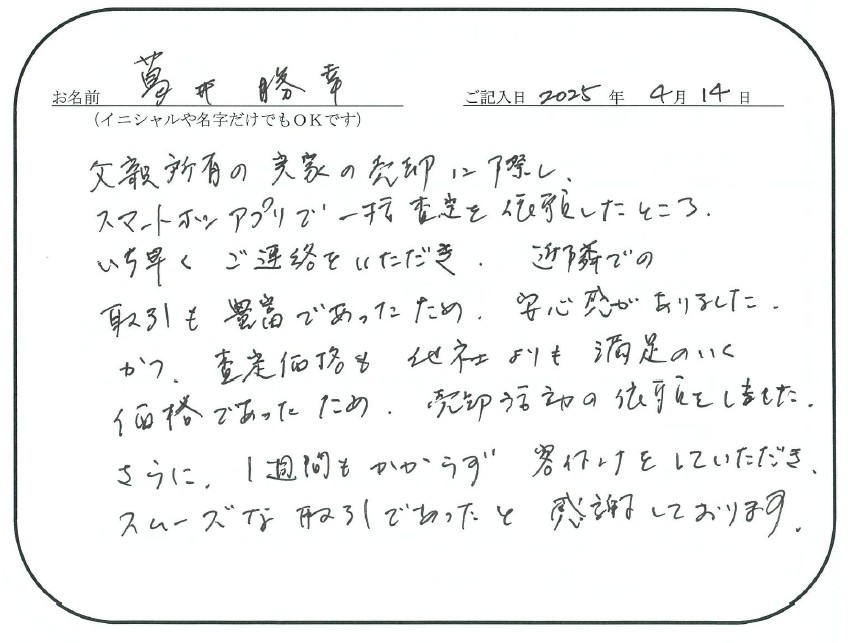 お名前 葛井 勝幸 ご記入日 2025年 4月14日
(イニシャルや名字だけでもOKです)
父親所有の実家の売却に際し、
スマートホンアプリで一括査定を依頼したところ、
いち早くご連絡をいただき、近隣での
取引も豊富であったため、安心感がありました。
かつ、査定価格も他社よりも満足のいく
価格であったため、売却活動の依頼をしました。
さらに、1週間もかからず客付けをしていただき、
スムーズな取引であったと感謝しております。